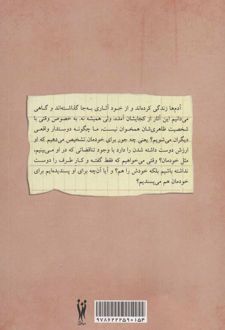 آدم‌ها زندگی کرده‌اند و از خود آثاری به‌جا گذاشته‌اند و گاهی
می‌دانیم این آثار از کجایشان آمده، ولی همیشه نه. به خصوص وقتی با
شخصیت ظاهری‌شان همخوان نیست. ما چگونه دوستدار واقعی
دیگران می‌شویم؟ یعنی چه جور برای خودمان تشخیص می‌دهیم که او
ارزش دوست داشته شدن را دارد با وجود تناقضاتی که در او می‌بینیم،
مثل خودمان؟ وقتی می‌خواهیم که فقط گفته و کار طرف را دوست
نداشته باشیم بلکه خودش را هم؟ و آیا آن‌چه برای او پسندیده‌ایم برای
خودمان هم می‌پسندیم؟
۹۷۸۶۲۲۲۵۹۰۱۵۴